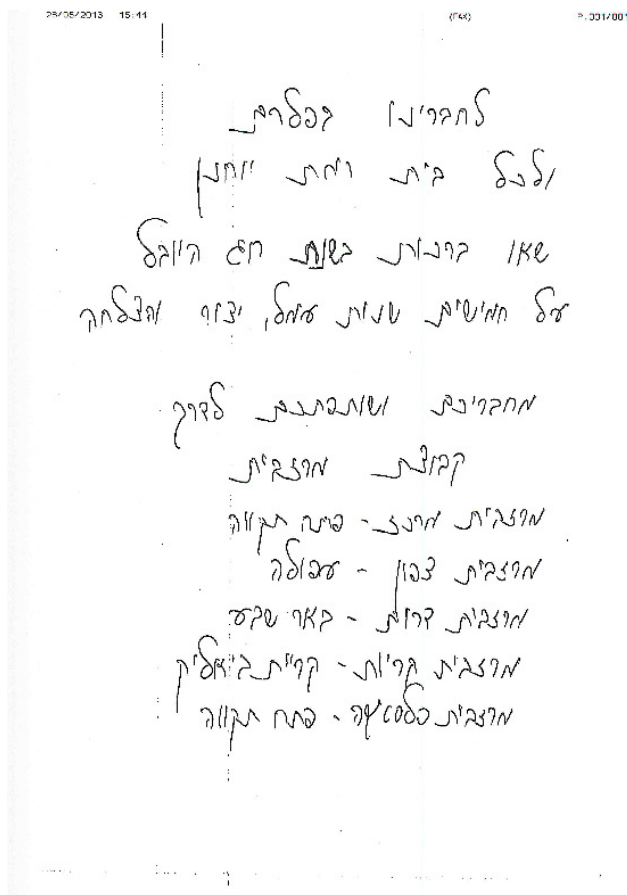 28/05/2013 15:44 (FAX) P.001/001
לחברינו בפלרם
ולכל בית רמת יוחנן
שאו ברכות בשנת חג היובל
על חמישים שנות עמל, יצור והצלחה
מחבריכם ושותפתכם לדרך
קבוצת מרזבית
מרזבית מרכז - פתח תקווה
מרזבית צפון - עפולה
מרזבית דרום - באר שבע
מרזבית קריות - קריית ביאליק
מרזבית פלסטיקה - פתח תקווה